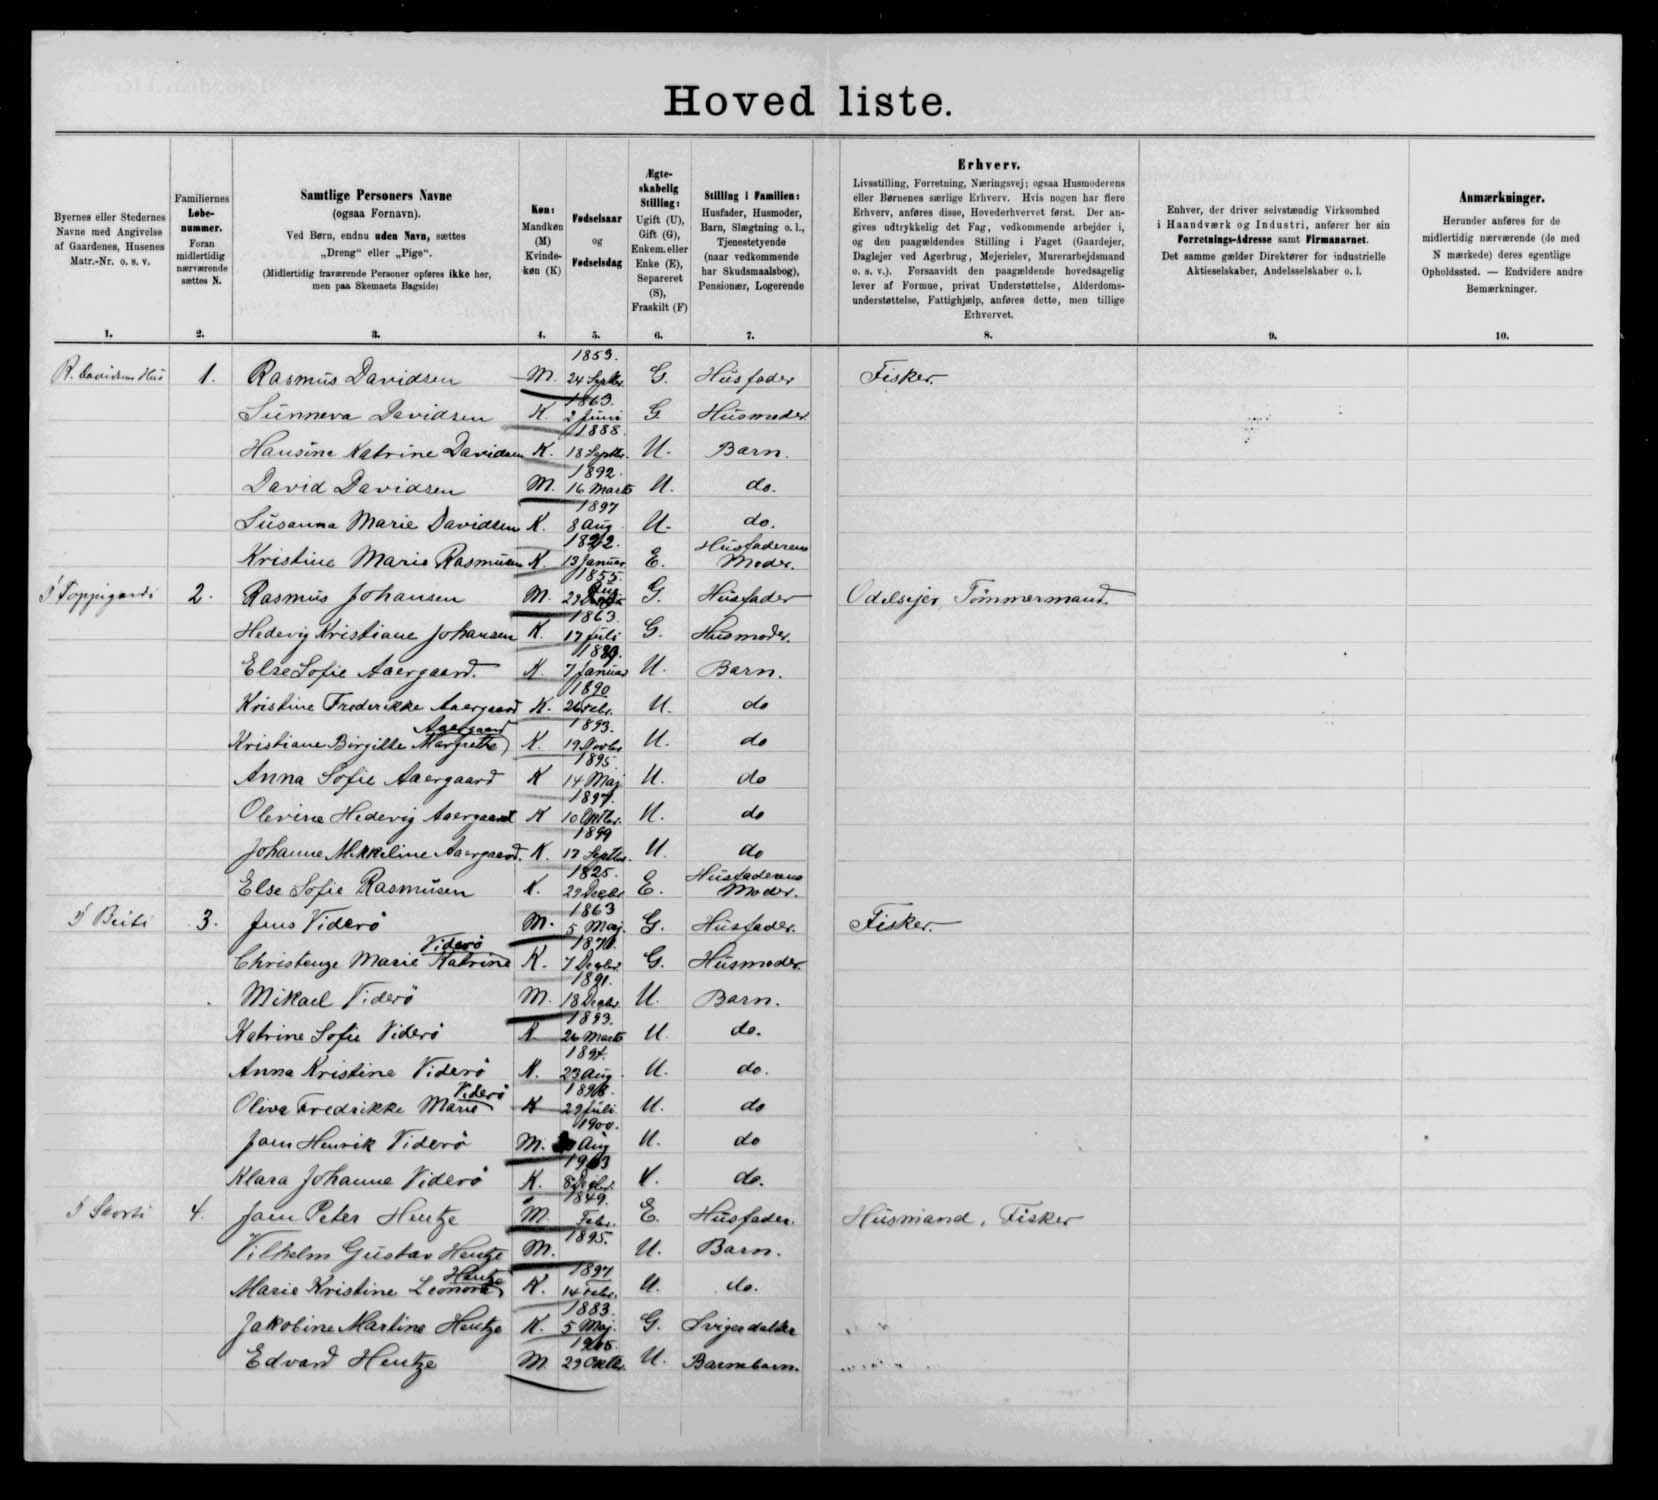 Hoved liste.
Byernes eller Stedernes
Navne med Angivelse
af Gaardenes, Husenes
Matr.-Nr. o. s. v.
1.
Familiernes
Løbe-
nummer.
Foran
midlertidig
nærværende
sættes N.
2.
Samtlige Personers Navne
(ogsaa Fornavn).
Ved Børn, endnu uden Navn, sættes
„Dreng“ eller „Pige“.
(Midlertidig fraværende Personer opføres ikke her,
men paa Skemaets Bagside)
3.
Køn:
Mandkøn
(M)
Kvinde-
køn (K)
4.
Fødselsaar
og
Fødselsdag
5.
Ægte-
skabelig
Stilling:
Ugift (U),
Gift (G),
Enkem. eller
Enke (E),
Separeret
(S),
Fraskilt (F)
6.
Stilling i Familien:
Husfader, Husmoder,
Barn, Slægtning o. l.,
Tjenestetyende
(naar vedkommende
har Skudsmaalsbog),
Pensionær, Logerende
7.
Erhverv.
Livsstilling, Forretning, Næringsvej; ogsaa Husmoderens
eller Børnenes særlige Erhverv. Hvis nogen har flere
Erhverv, anføres disse, Hovederhvervet først. Der an-
gives udtrykkelig det Fag, vedkommende arbejder i,
og den paagældendes Stilling i Faget (Gaardejer,
Daglejer ved Agerbrug, Mejerielev, Murerarbejdsmand
o. s. v.). Forsaavidt den paagældende hovedsagelig
lever af Formue, privat Understøttelse, Alderdoms-
understøttelse, Fattighjælp, anføres dette, men tillige
Erhvervet.
8.
Enhver, der driver selvstændig Virksomhed
i Haandværk og Industri, anfører her sin
Forretnings-Adresse samt Firmanavnet.
Det samme gælder Direktører for industrielle
Aktieselskaber, Andelsselskaber o. l.
9.
Anmærkninger.
Herunder anføres for de
midlertidig nærværende (de med
N mærkede) deres egentlige
Opholdssted. — Endvidere andre
Bemærkninger.
10.
R. Davidsens Hus 1. Rasmus Davidsen M. 1853. 24 Septbr. G. Husfader Fisker.
Sunneva Davidsen K 1863. 2 Juni G Husmoder
Hansine Katrine Davidsen K. 1888. 18 Septbr. U. Barn.
David Davidsen M. 1892. 16 Marts U. do.
Susanna Marie Davidsen K. 1897 8 Aug. U. do.
Kristine Marie Rasmusen K. 1822. 13 Januar E. Husfaderens Moder.
2. Rasmus Johansen M. 1855. 29 Aug. G. Husfader Odelsejer, Tømmermand.
Hedevig Kristiane Johansen K. 1863. 17 Juli G. Husmoder.
Else Sofie Aaergaard. K. 1889. 7 Januar U. Barn.
Kristine Frederikke Aaergaard K. 1890 26 Febr. U. do
Kristiane Birgitte Margrethe Aaergaard K. 1893. 19 Novbr U. do
Anna Sofie Aaergaard K 1895. 14 Maj U. do
Olevine Hedevig Aaergaard K 1897. 10 Oktbr. U. do
Johanne Mikkeline Aaergaard. K. 1899 17 Septbr. U. do
Else Sofie Rasmusen K. 1825. 29 Decbr E. Husfaderens Moder.
Í Beiti 3. Jens Viderø M. 1863 5 Maj. G. Husfader. Fisker.
Christenze Marie Katrine Viderø K. 1871. 7 Decbr. G. Husmoder.
Mikael Viderø M. 1891. 18 Decbr. U. Barn.
Katrine Sofie Viderø K 1893. 26 Marts U. do.
Anna Kristine Viderø K. 23 Aug. U. do.
Oliva Fredrikke Marie Viderø K 29 Juli U. do
Joen Henrik Viderø M. 1900. Aug U. do
Klara Johanne Viderø K. 1903 8 Decbr. U. do.
4. Joen Peter Hentze M. 1849. Febr. E. Husfader. Husmand, Fisker
Vilhelm Gustav Hentze M. 1895. U. Barn.
Marie Kristine Leonora Hentze K. 1897 14 Febr. U. do.
Jakobine Martine Hentze K. 1883. 5 Maj. G. Svigerdatter
Edvard Hentze M 1905. 29 Oktbr. U. Barnebarn.